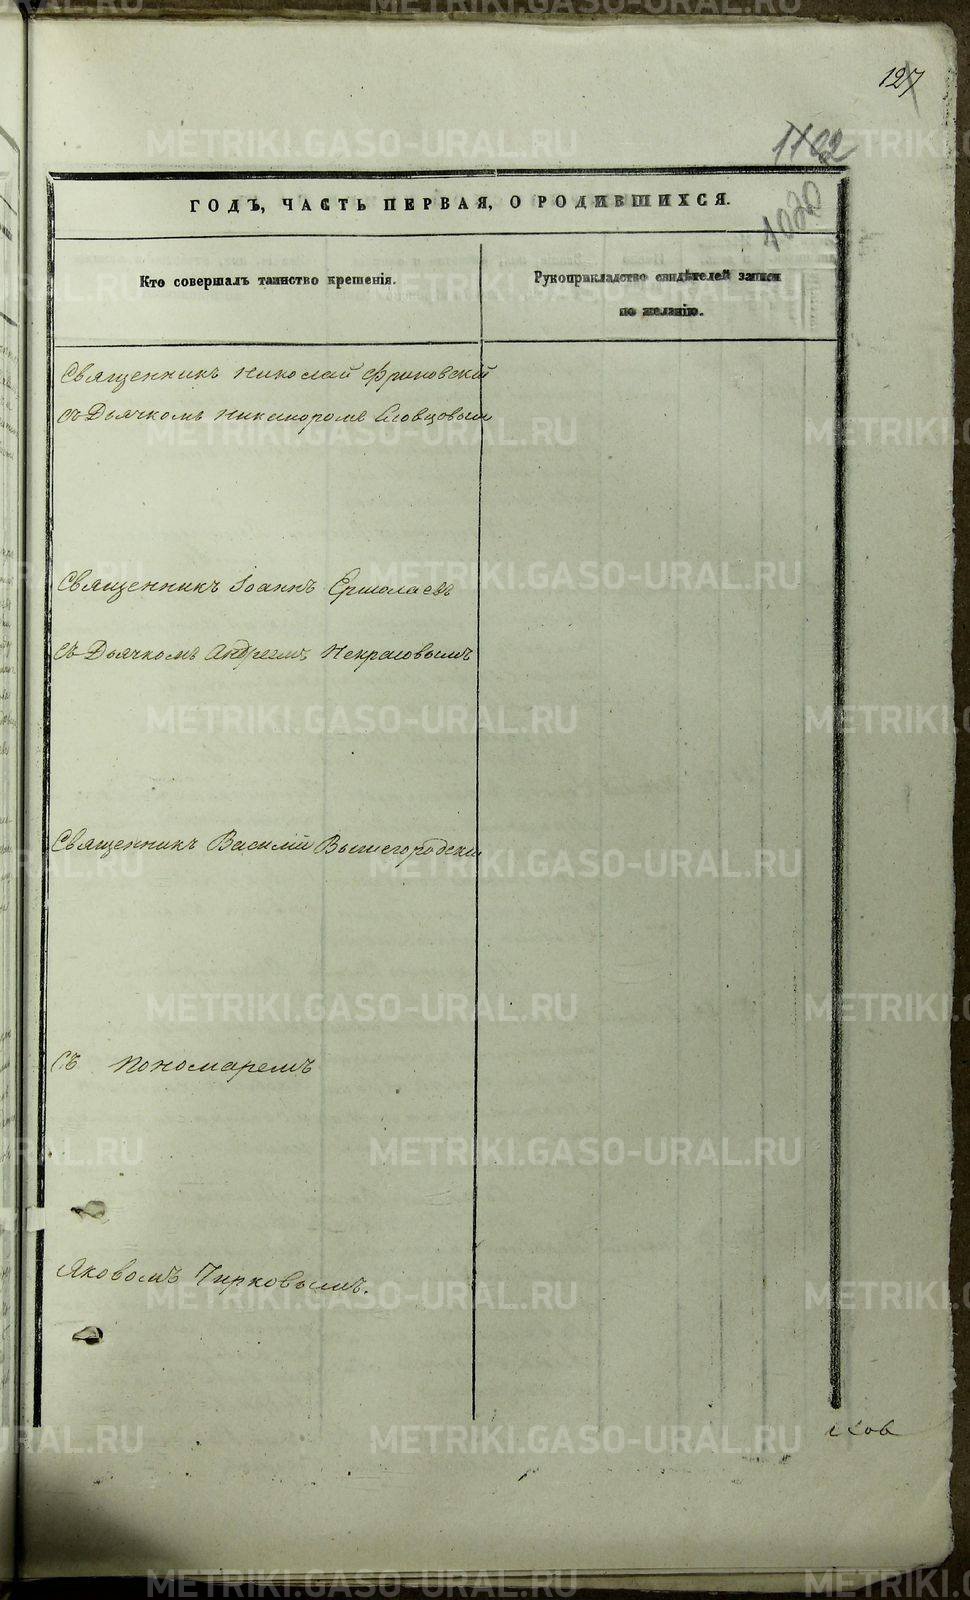 127
1102
1020
ГОДЪ, ЧАСТЬ ПЕРВАЯ, О РОДИВШИХСЯ.
Кто совершалъ таинство крещенія.
Рукоприкладство свидѣтелей записи
по желанію.
Священникъ Николай Фриновскій
съ Дьячкомъ Никаноромъ Словцовым
Священникъ Іоаннъ Ермолаевъ
съ Дьячкомъ Андреемъ Некрасовымъ
Священникъ Василій Вышегородскій
съ пономаремъ
Яковомъ Чирковымъ.
METRIKI.GASO-URAL.RU